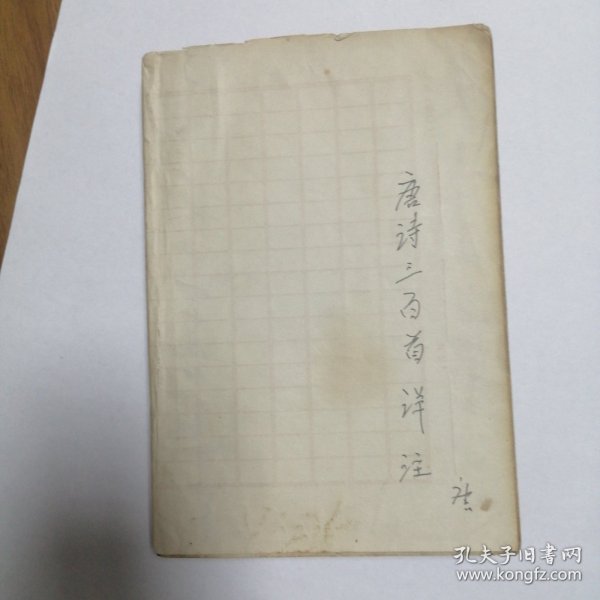 唐诗三百首详注
孔夫子旧书网
www.kongfz.com